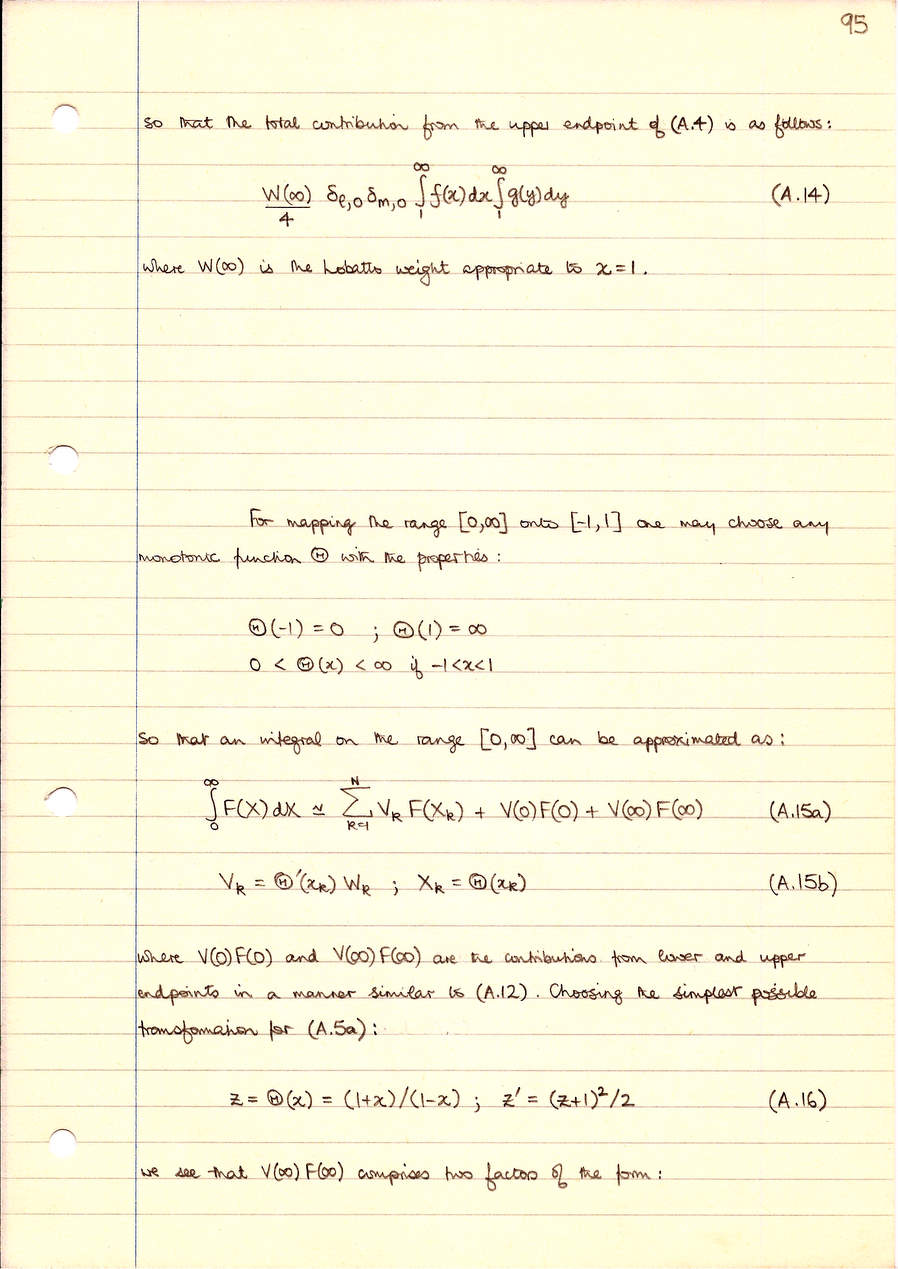 95
so that the total contribution from the upper endpoint of (A.4) is as follows:
W(∞)/4 δℓ,0 δm,0 ∫₁^∞ f(x)dx ∫₁^∞ g(y)dy (A.14)
where W(∞) is the Lobatto weight appropriate to x=1.
For mapping the range [0,∞] onto [-1,1] one may choose any
monotonic function Θ with the properties:
Θ(-1) = 0 ; Θ(1) = ∞
0 < Θ(x) < ∞ if -1<x<1
So that an integral on the range [0,∞] can be approximated as:
∫₀^∞ F(X)dX ≃ Σ_{R=1}^{N} V_R F(X_R) + V(0)F(0) + V(∞)F(∞) (A.15a)
V_R = Θ'(x_R) W_R ; X_R = Θ(x_R) (A.15b)
where V(0)F(0) and V(∞)F(∞) are the contributions from lower and upper
endpoints in a manner similar to (A.12). Choosing the simplest possible
transfomation for (A.5a):
z = Θ(x) = (1+x)/(1-x) ; z' = (z+1)²/2 (A.16)
we see that V(∞)F(∞) comprises two factors of the form: